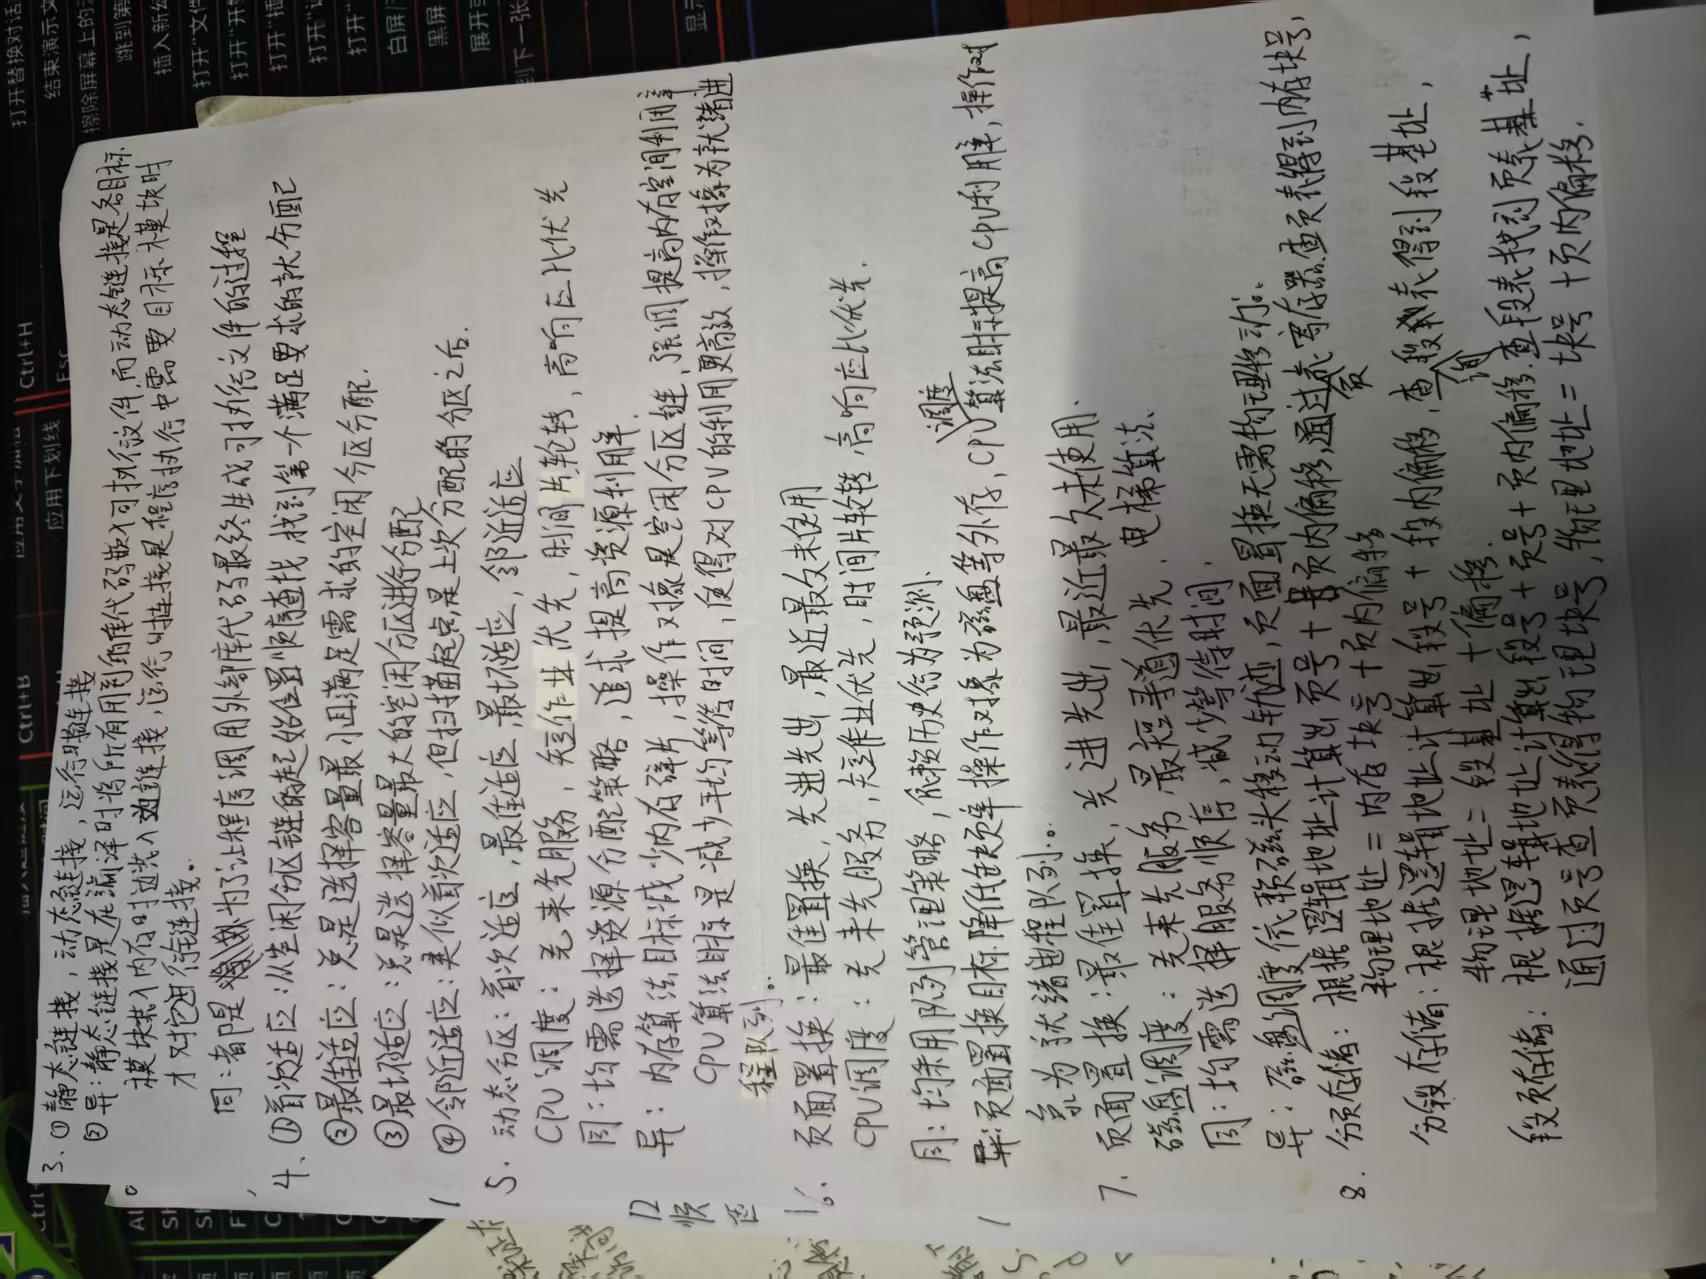 3. ①静态链接，动态链接，运行时链接
②异：静态链接是在编译时将所有用到的库代码嵌入可执行文件，而动态链接是各目标
模块装入内存时边装入边链接，运行时链接是程序执行中需要目标模块时
才对它进行链接。
同：都是为了让程序调用外部库代码最终生成可执行文件的过程
4、①首次适应：从空闲分区链的起始位置顺序查找，找到第一个满足要求的就分配
②最佳适应：总是选择容量最小且满足需求的空闲分区分配.
③最坏适应：总是选择容量最大的空闲分区进行分配
④邻近适应：类似首次适应，但扫描起点是上次分配的分区之后.
5. 动态分区：首次适应，最佳适应，最坏适应，邻近适应
CPU调度：先来先服务，短作业优先，时间片轮转，高响应比优先
同：均需选择资源分配策略，追求提高资源利用率
异：内存算法目标减少内存碎片，操作对象是空闲分区链，强调提高内存空间利用率
CPU算法目标是减少平均等待时间，使得对CPU的利用更高效，操作对象为就绪进
程队列。
6. 页面置换：最佳置换，先进先出，最近最久未使用
CPU调度：先来先服务，短作业优先，时间片轮转，高响应比优先.
同：均采用队列管理策略，依赖历史行为预测.
异：页面置换目标降低缺页率操作对象为磁盘等外存，CPU调度算法目标提高CPU利用率，操作对
象为就绪进程队列。
7. 页面置换：最佳置换，先进先出，最近最久未使用.
磁盘调度：先来先服务，最短寻道优先，电梯算法.
同：均需选择服务顺序，减少等待时间.
异：磁盘调度依赖磁头移动轨迹，页面置换无需物理移动.
8. 分页存储：根据逻辑地址计算出页号+页内偏移，通过页表寄存器查页表得到内存块号，
物理地址=内存块号+页内偏移
分段存储：根据逻辑地址计算出段号+段内偏移，查询段表得到段基址，
物理地址=段基址+偏移.
段页存储：根据逻辑地址计算出段号+页号+页内偏移.查段表找到页表基址，
通过页号查页表得物理块号，物理地址=块号+页内偏移.
打开替换对话
结束演示文
擦除屏幕上的
跳到第
插入新幻
打开“文件
白屏
黑屏
展开或
到下一张
显示
Ctrl+H
Esc
应用下划线
Ctrl+B